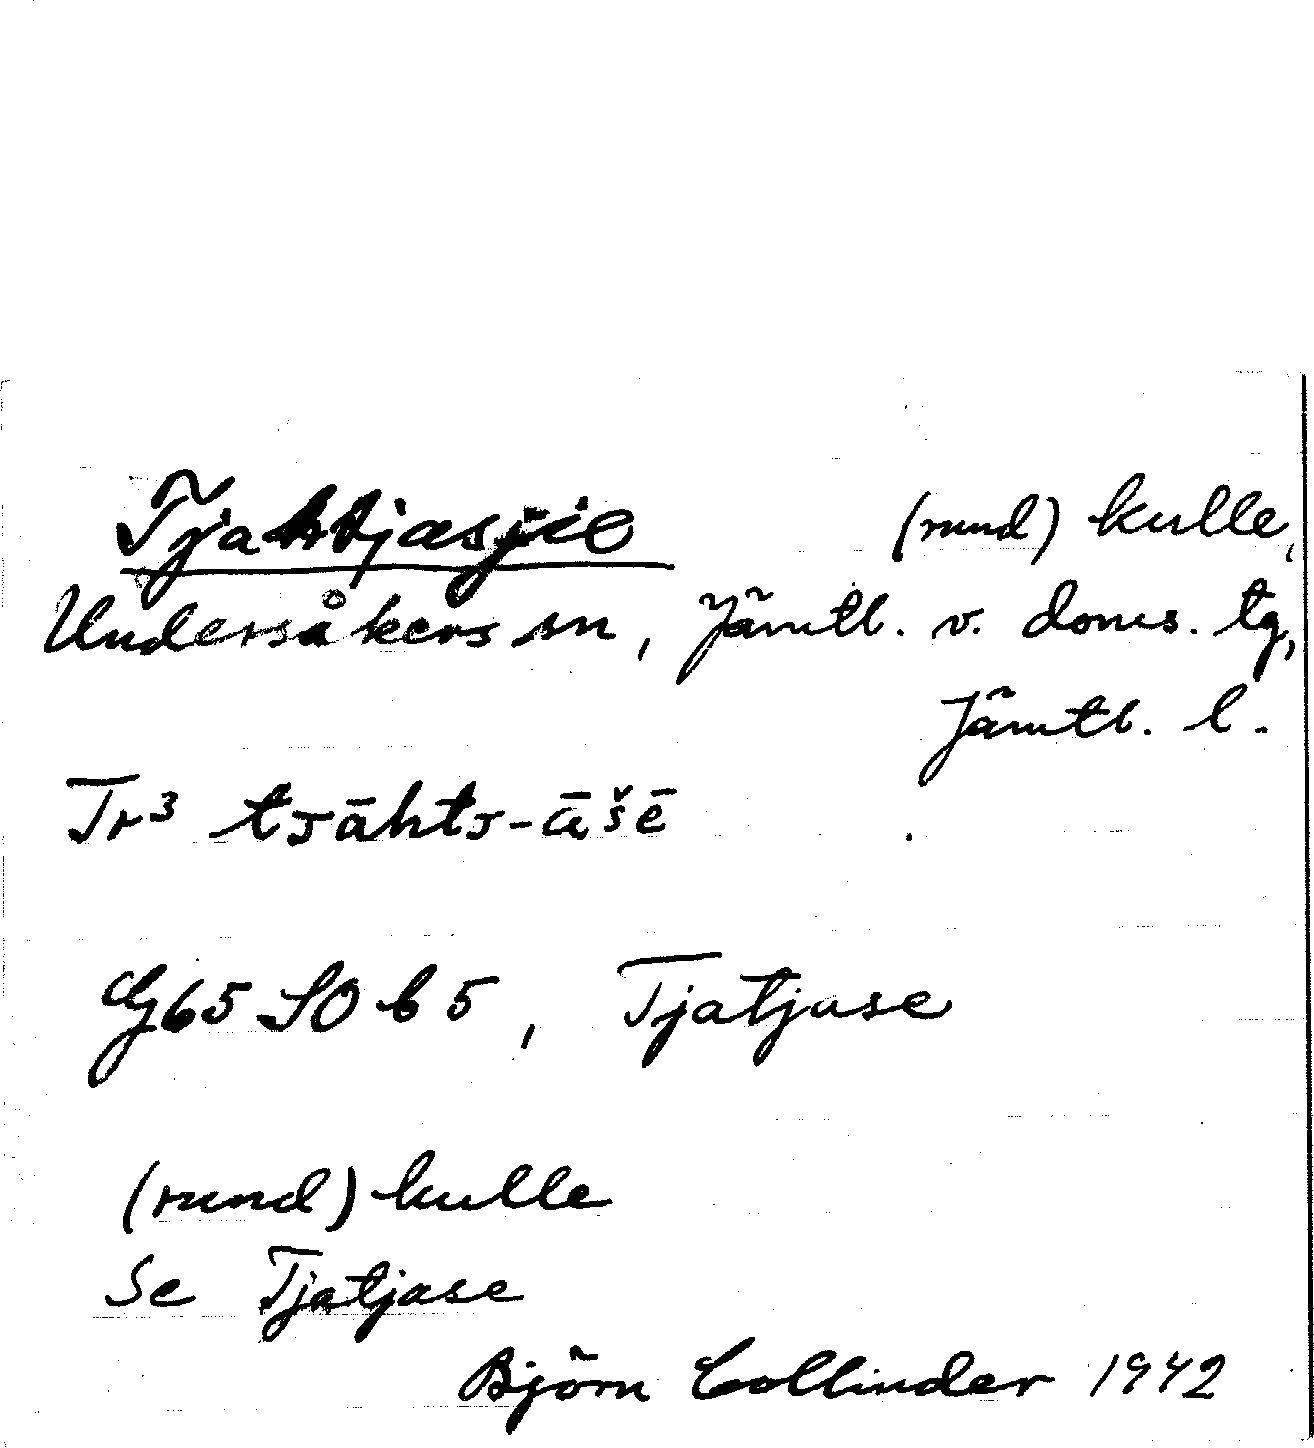 Tjahtjasjie (rund) kulle,
Undersåkers sn, Jämtl. v. doms. tg,
Jämtl. l.
Tr³ tsāhts-āšē
G65 SO b 5, Tjatjase
(rund) kulle
Se Tjatjase
Björn Collinder 1942